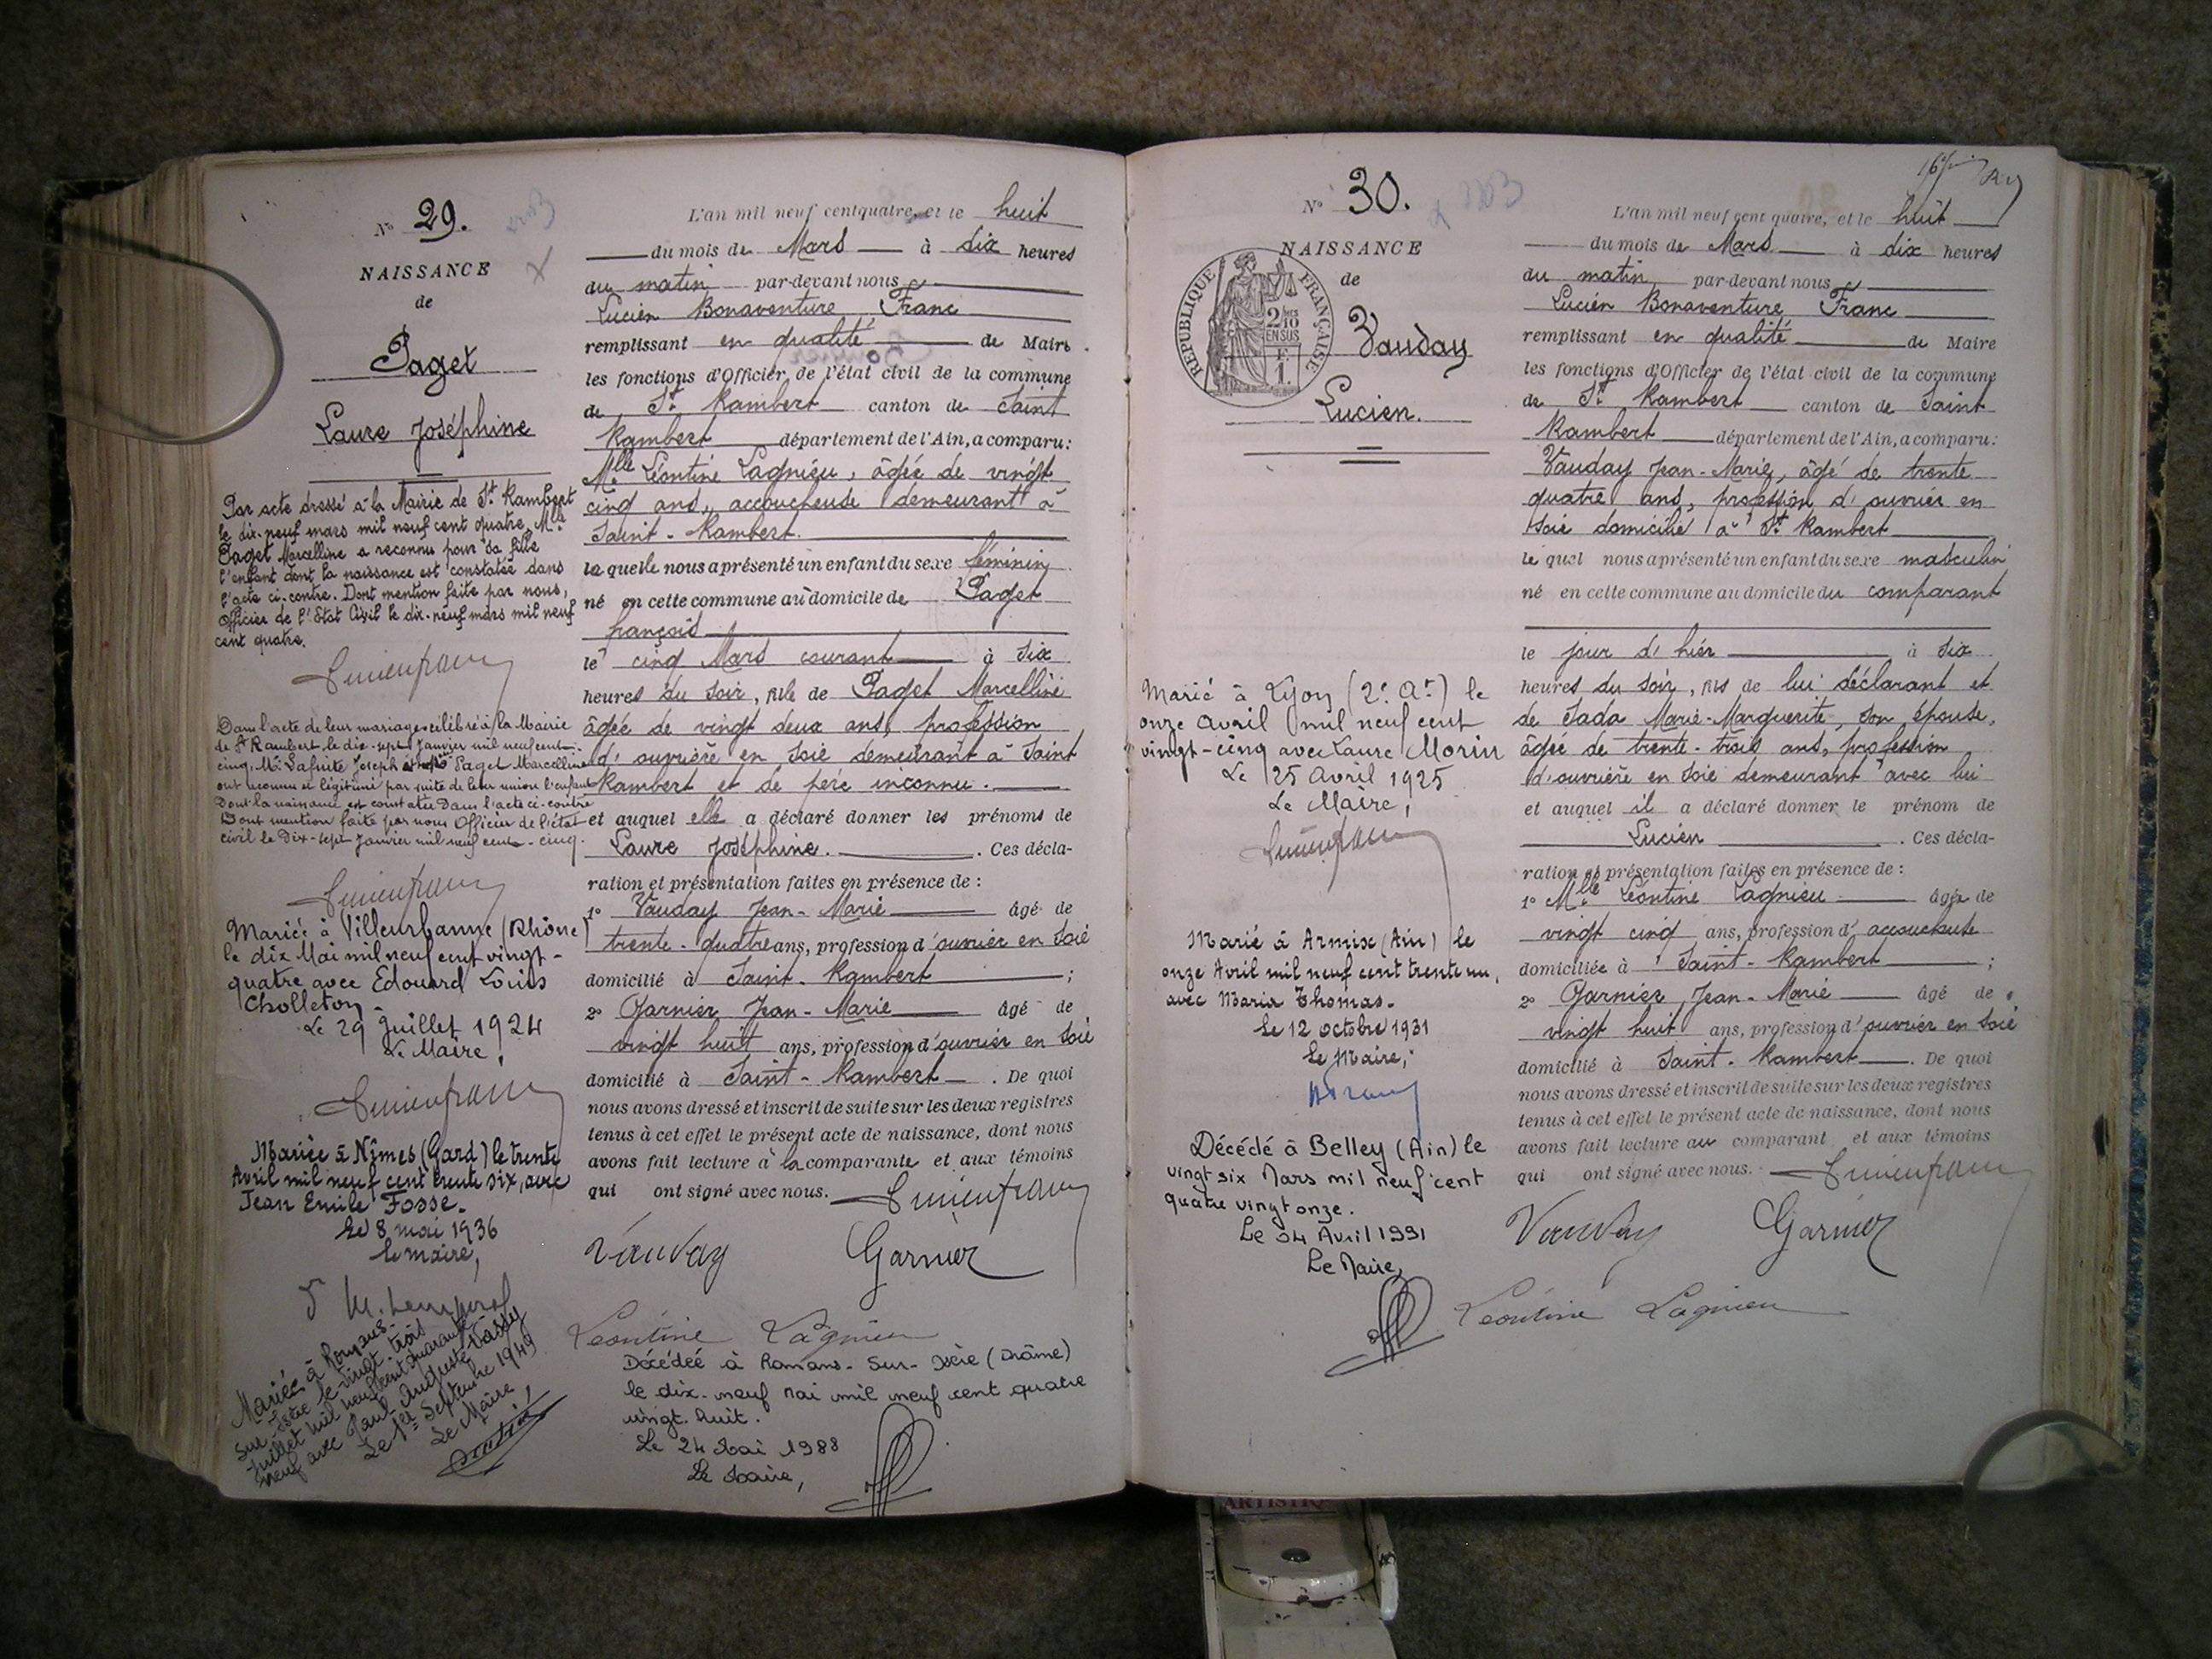 N° 29.
NAISSANCE
de
Paget
Laure Joséphine
Par acte dressé à la Mairie de St. Rambert
le dix-neuf mars mil neuf cent quatre, Mlle
Paget Marcelline a reconnu pour sa fille
l'enfant dont la naissance est constatée dans
l'acte ci-contre. Dont mention faite par nous,
Officier de l'Etat Civil le dix-neuf mars mil neuf
cent quatre.
Lucienfranc
Dans l'acte de leur mariage célébré à la Mairie
de St Rambert le dix-sept Janvier mil neuf cent
cinq, Mr. Lafuite Joseph et Paget Marcelline
ont reconnu et légitimé par suite de leur union l'enfant
Dont la naissance est constatée Dans l'acte ci-contre
Dont mention faite par nous Officier de l'état
civil le Dix-sept Janvier mil neuf cent-cinq.
Lucienfranc
Mariée à Villeurbanne (Rhône)
le dix Mai mil neuf cent vingt-
quatre avec Edouard Louis
Cholleton.
Le 29 Juillet 1924
Le Maire,
Lucienfranc
Mariée à Nîmes (Gard) le trente
Avril mil neuf cent trente six, avec
Jean Emile Fosse.
Le 8 mai 1936
le maire,
Mariée à Romans-
sur-Isère le vingt trois
Juillet mil neuf cent quarante
neuf avec Paul Auguste Vassy
Le 1er Septembre 1949
Le Maire,
L'an mil neuf cent quatre, et le huit
du mois de Mars à dix heures
du matin par-devant nous
Lucien Bonaventure Franc
remplissant en qualité de Maire
les fonctions d'Officier de l'état civil de la commune
de St. Rambert canton de Saint
Rambert département de l'Ain, a comparu:
Mlle Léontine Lagnieu, âgée de vingt
cinq ans, accoucheuse demeurant à
Saint-Rambert.
laquelle nous a présenté un enfant du sexe féminin
né en cette commune au domicile de Paget
françois
le cinq Mars courant à six
heures du soir, fille de Paget Marcelline
âgée de vingt deux ans, profession
d'ouvrière en soie demeurant à Saint
Rambert et de père inconnu.
et auquel elle a déclaré donner les prénoms de
Laure Joséphine. . Ces décla-
ration et présentation faites en présence de :
1° Vauday Jean-Marie âgé de
trente-quatre ans, profession d'ouvrier en soie
domicilié à Saint-Rambert ;
2° Garnier Jean-Marie âgé de
vingt huit ans, profession d'ouvrier en soie
domicilié à Saint-Rambert . De quoi
nous avons dressé et inscrit de suite sur les deux registres
tenus à cet effet le présent acte de naissance, dont nous
avons fait lecture à la comparante et aux témoins
qui ont signé avec nous. Lucienfranc
Vauday Garnier
Léontine Lagnieu
Décédée à Romans-sur-Isère (Drôme)
le dix-neuf mai mil neuf cent quatre
vingt-huit.
Le 24 Mai 1988
Le Maire,
N° 30.
NAISSANCE
de
RÉPUBLIQUE FRANÇAISE
2/10 EN SUS
1 F.
Vauday
Lucien.
Marié à Lyon (2e Art) le
onze avril mil neuf cent
vingt-cinq avec Laure Morin
Le 25 Avril 1925
Le Maire,
Lucienfranc
Marié à Armix (Ain) le
onze Avril mil neuf cent trente un,
avec Maria Thomas.
Le 12 octobre 1931
Le Maire,
Décédé à Belley (Ain) le
vingt six Mars mil neuf cent
quatre vingt onze.
Le 04 Avril 1991
Le Maire,
L'an mil neuf cent quatre, et le huit
du mois de Mars à dix heures
du matin par-devant nous
Lucien Bonaventure Franc
remplissant en qualité de Maire
les fonctions d'Officier de l'état civil de la commune
de St. Rambert canton de Saint
Rambert département de l'Ain, a comparu:
Vauday Jean-Marie, âgé de trente
quatre ans, profession d'ouvrier en
soie domicilié à St. Rambert
lequel nous a présenté un enfant du sexe masculin
né en cette commune au domicile du comparant
le jour d'hier à six
heures du soir, fils de lui déclarant et
de Sada Marie-Marguerite, son épouse,
âgée de trente-trois ans, profession
d'ouvrière en soie demeurant avec lui
et auquel il a déclaré donner le prénom de
Lucien . Ces décla-
ration et présentation faites en présence de :
1° Mlle Léontine Lagnieu âgée de
vingt cinq ans, profession d'accoucheuse
domiciliée à Saint-Rambert ;
2° Garnier Jean-Marie âgé de
vingt huit ans, profession d'ouvrier en soie
domicilié à Saint-Rambert . De quoi
nous avons dressé et inscrit de suite sur les deux registres
tenus à cet effet le présent acte de naissance, dont nous
avons fait lecture au comparant et aux témoins
qui ont signé avec nous. Lucienfranc
Vauday Garnier
Léontine Lagnieu
ARTISTIQ